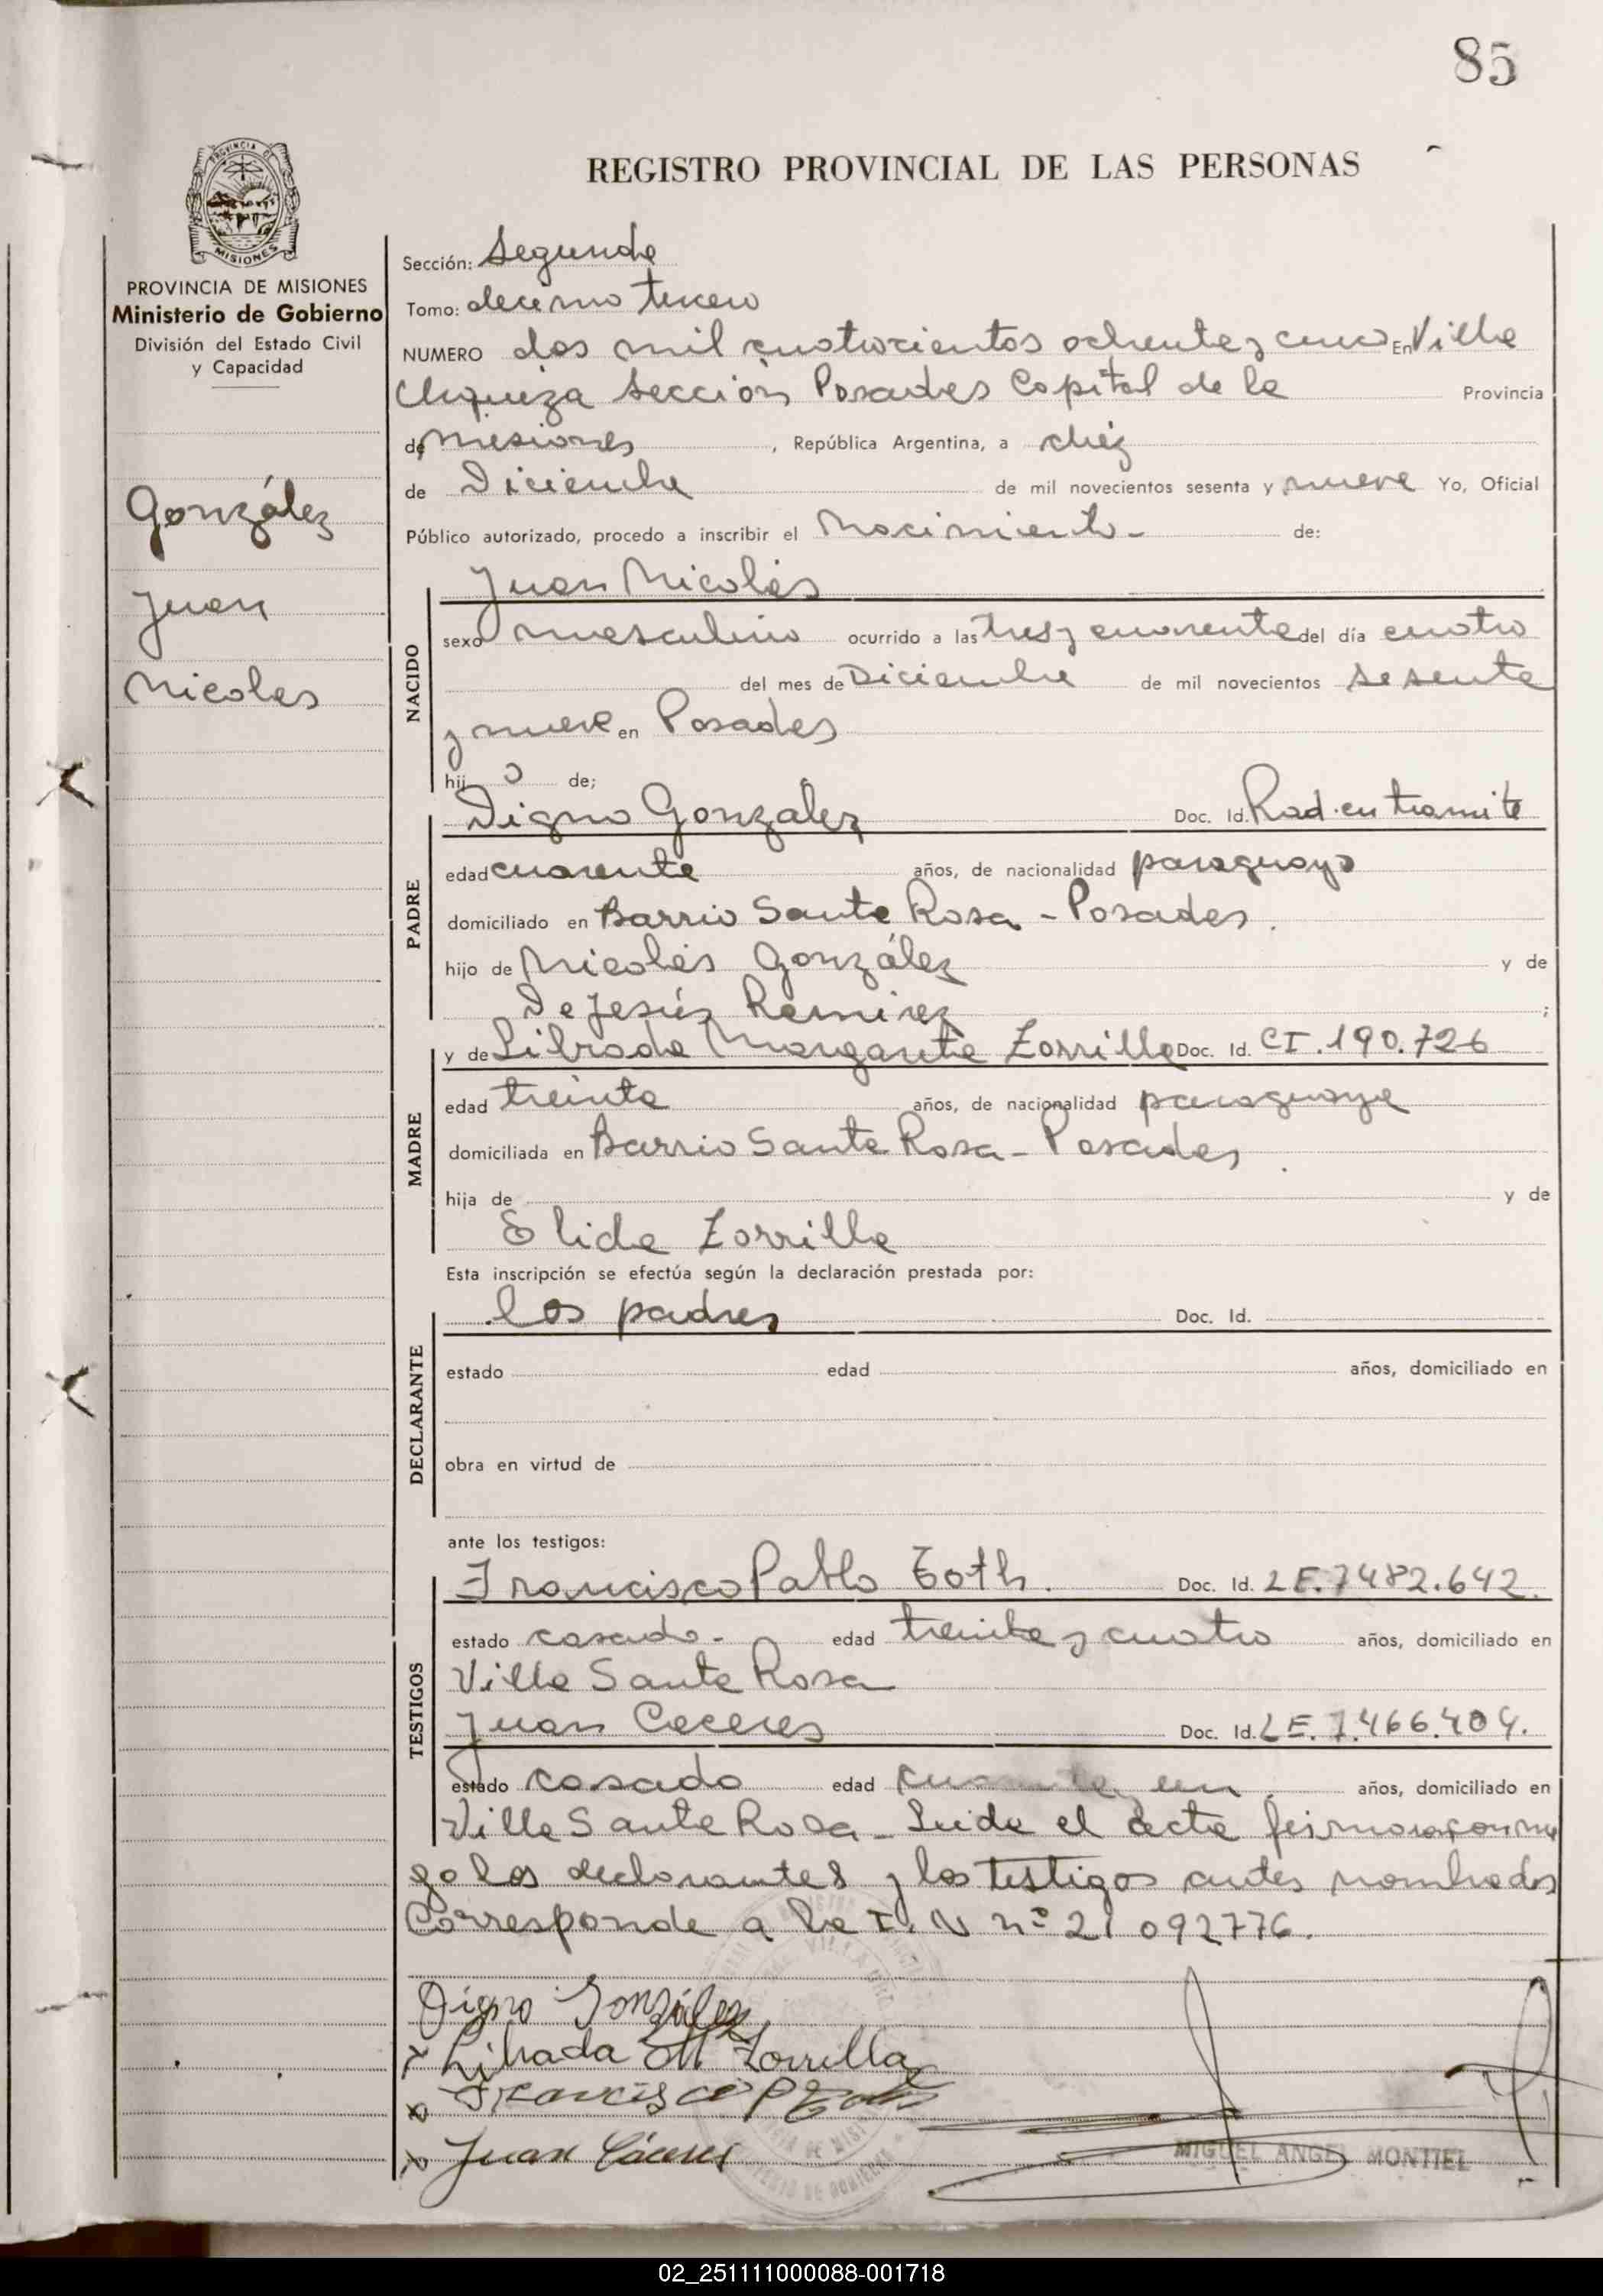 85
REGISTRO PROVINCIAL DE LAS PERSONAS
PROVINCIA DE MISIONES
Ministerio de Gobierno
División del Estado Civil
y Capacidad
González
Juan
Nicolas
Sección: Segunda
Tomo: decimo tercero
NUMERO dos mil cuatrocientos ochenta y cinco En Villa
Urquiza Sección Posadas Capital de la Provincia
de Misiones, República Argentina, a diéz
de Diciembre de mil novecientos sesenta y nueve Yo, Oficial
Público autorizado, procedo a inscribir el Nacimiento- de:
NACIDO
Juan Nicolás
sexo masculino ocurrido a las tres y cuarenta del día cuatro
del mes de Diciembre de mil novecientos sesenta
y nueve en Posadas
hij o de;
PADRE
Digno Gonzalez Doc. Id. Rad. en tramite
edad cuarenta años, de nacionalidad paraguayo
domiciliado en Barrio Santa Rosa - Posadas.
hijo de Nicolás González y de
De Jesús Ramirez ;
MADRE
y de Librada Margarita Zorrilla Doc. Id. CI. 190.726
edad treinta años, de nacionalidad paraguaya
domiciliada en Barrio Santa Rosa - Posadas.
hija de y de
Elida Zorrilla
Esta inscripción se efectúa según la declaración prestada por:
DECLARANTE
los padres Doc. Id.
estado edad años, domiciliado en
obra en virtud de
ante los testigos:
TESTIGOS
Francisco Pablo Toth. Doc. Id. LE. 7482.642.
estado casado- edad treinta y cuatro años, domiciliado en
Villa Santa Rosa
Juan Caceres Doc. Id. LE. 7.466.404.
estado casado edad cuarenta y un años, domiciliado en
Villa Santa Rosa - Leida el acta firmaron conmi
go los declarantes y los testigos antes nombrados
Corresponde a la I. N nº 21 092776.
Digno González
Librada M Zorrilla
Francisco P
Juan Cáceres
MIGUEL ANGEL MONTIEL
02_251111000088-001718